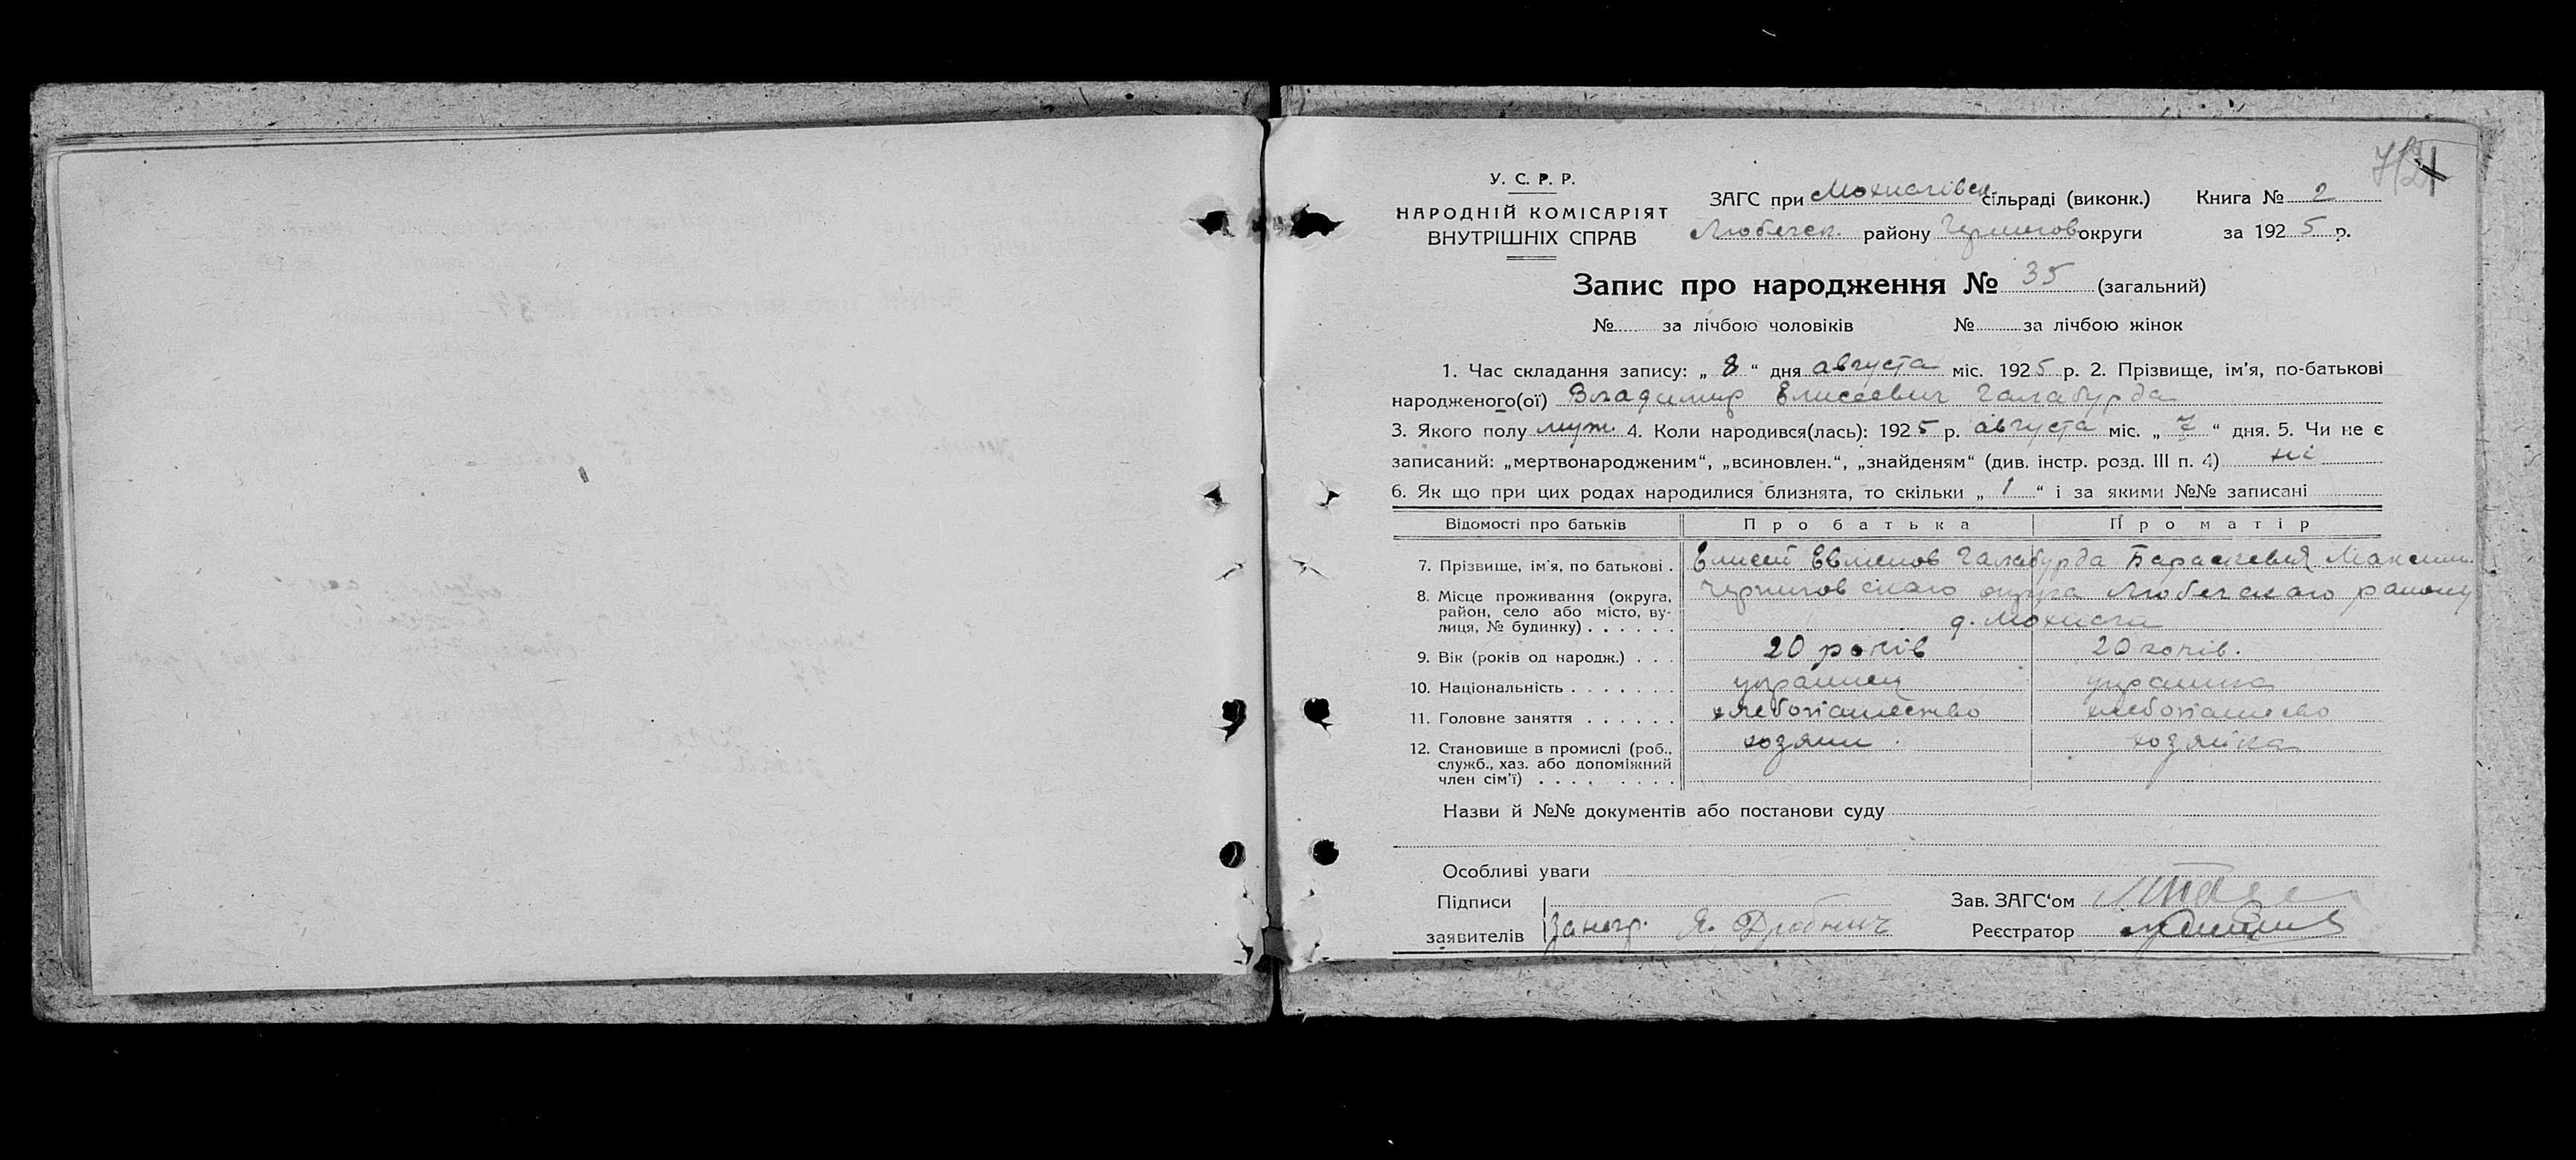 У. С. Р. Р.
НАРОДНІЙ КОМІСАРІЯТ
ВНУТРІШНІХ СПРАВ
ЗАГС при Мохначівськ сільраді (виконк.) Книга № 2
Любечск. району Чернигов округи за 1925 р.
Запис про народження № 35 (загальний)
№ за лічбою чоловіків № за лічбою жінок
1. Час складання запису: „ 8 “ дня августа міс. 1925 р. 2. Прізвище, ім’я, по-батькові
народженого(ої) Владимир Елисеевич Галабурда
3. Якого полу муж. 4. Коли народився(лась): 1925 р. августа міс. „ 7 “ дня. 5. Чи не є
записаний: „мертвонародженим“, „всиновлен.“, „знайденям“ (див. інстр. розд. III п. 4) ні
6. Як що при цих родах народилися близнята, то скільки „ 1 “ і за якими №№ записані
Відомості про батьків Про батька Про матір
7. Прізвище, ім’я, по батькові . Елисей Евменов Галабурда Параскевия Максим.
8. Місце проживання (округа, район, село або місто, вулиця, № будинку) . . . . . . Черниговскаго округа Любечскаго району
9. Вік (років од народж.) . . . 20 років 20 років.
10. Національність . . . . . . . украинец украинка
11. Головне заняття . . . . . . хлебопашество хлебопашево
12. Становище в промислі (роб., служб., хаз. або допоміжний член сім’ї) . . . . . . . . . хозяин хозяйка
Назви й №№ документів або постанови суду
Особливі уваги
Підписи Зав. ЗАГС‘ом
заявителів За негр. Я. Дробнич Реєстратор